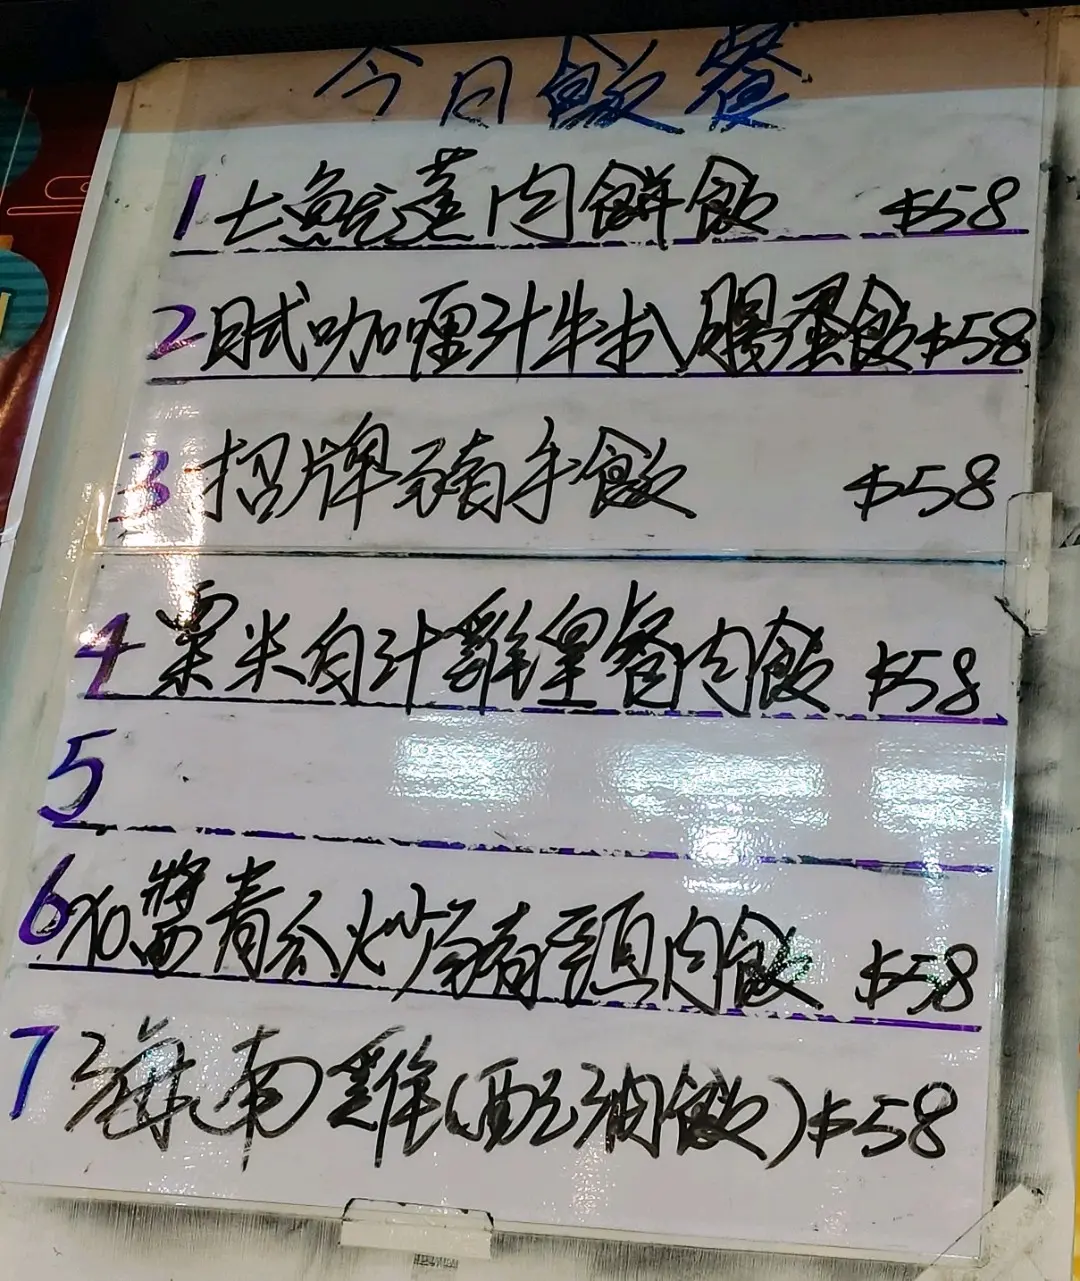 今日飯餐
1 土魷蒸肉餅飯 $58
2 日式咖喱汁牛扒腸蛋飯 $58
3 招牌豬手飯 $58
4 粟米肉汁雞皇餐肉飯 $58
5
6 XO醬青瓜炒豬頸肉飯 $58
7 海南雞(配油飯) $58